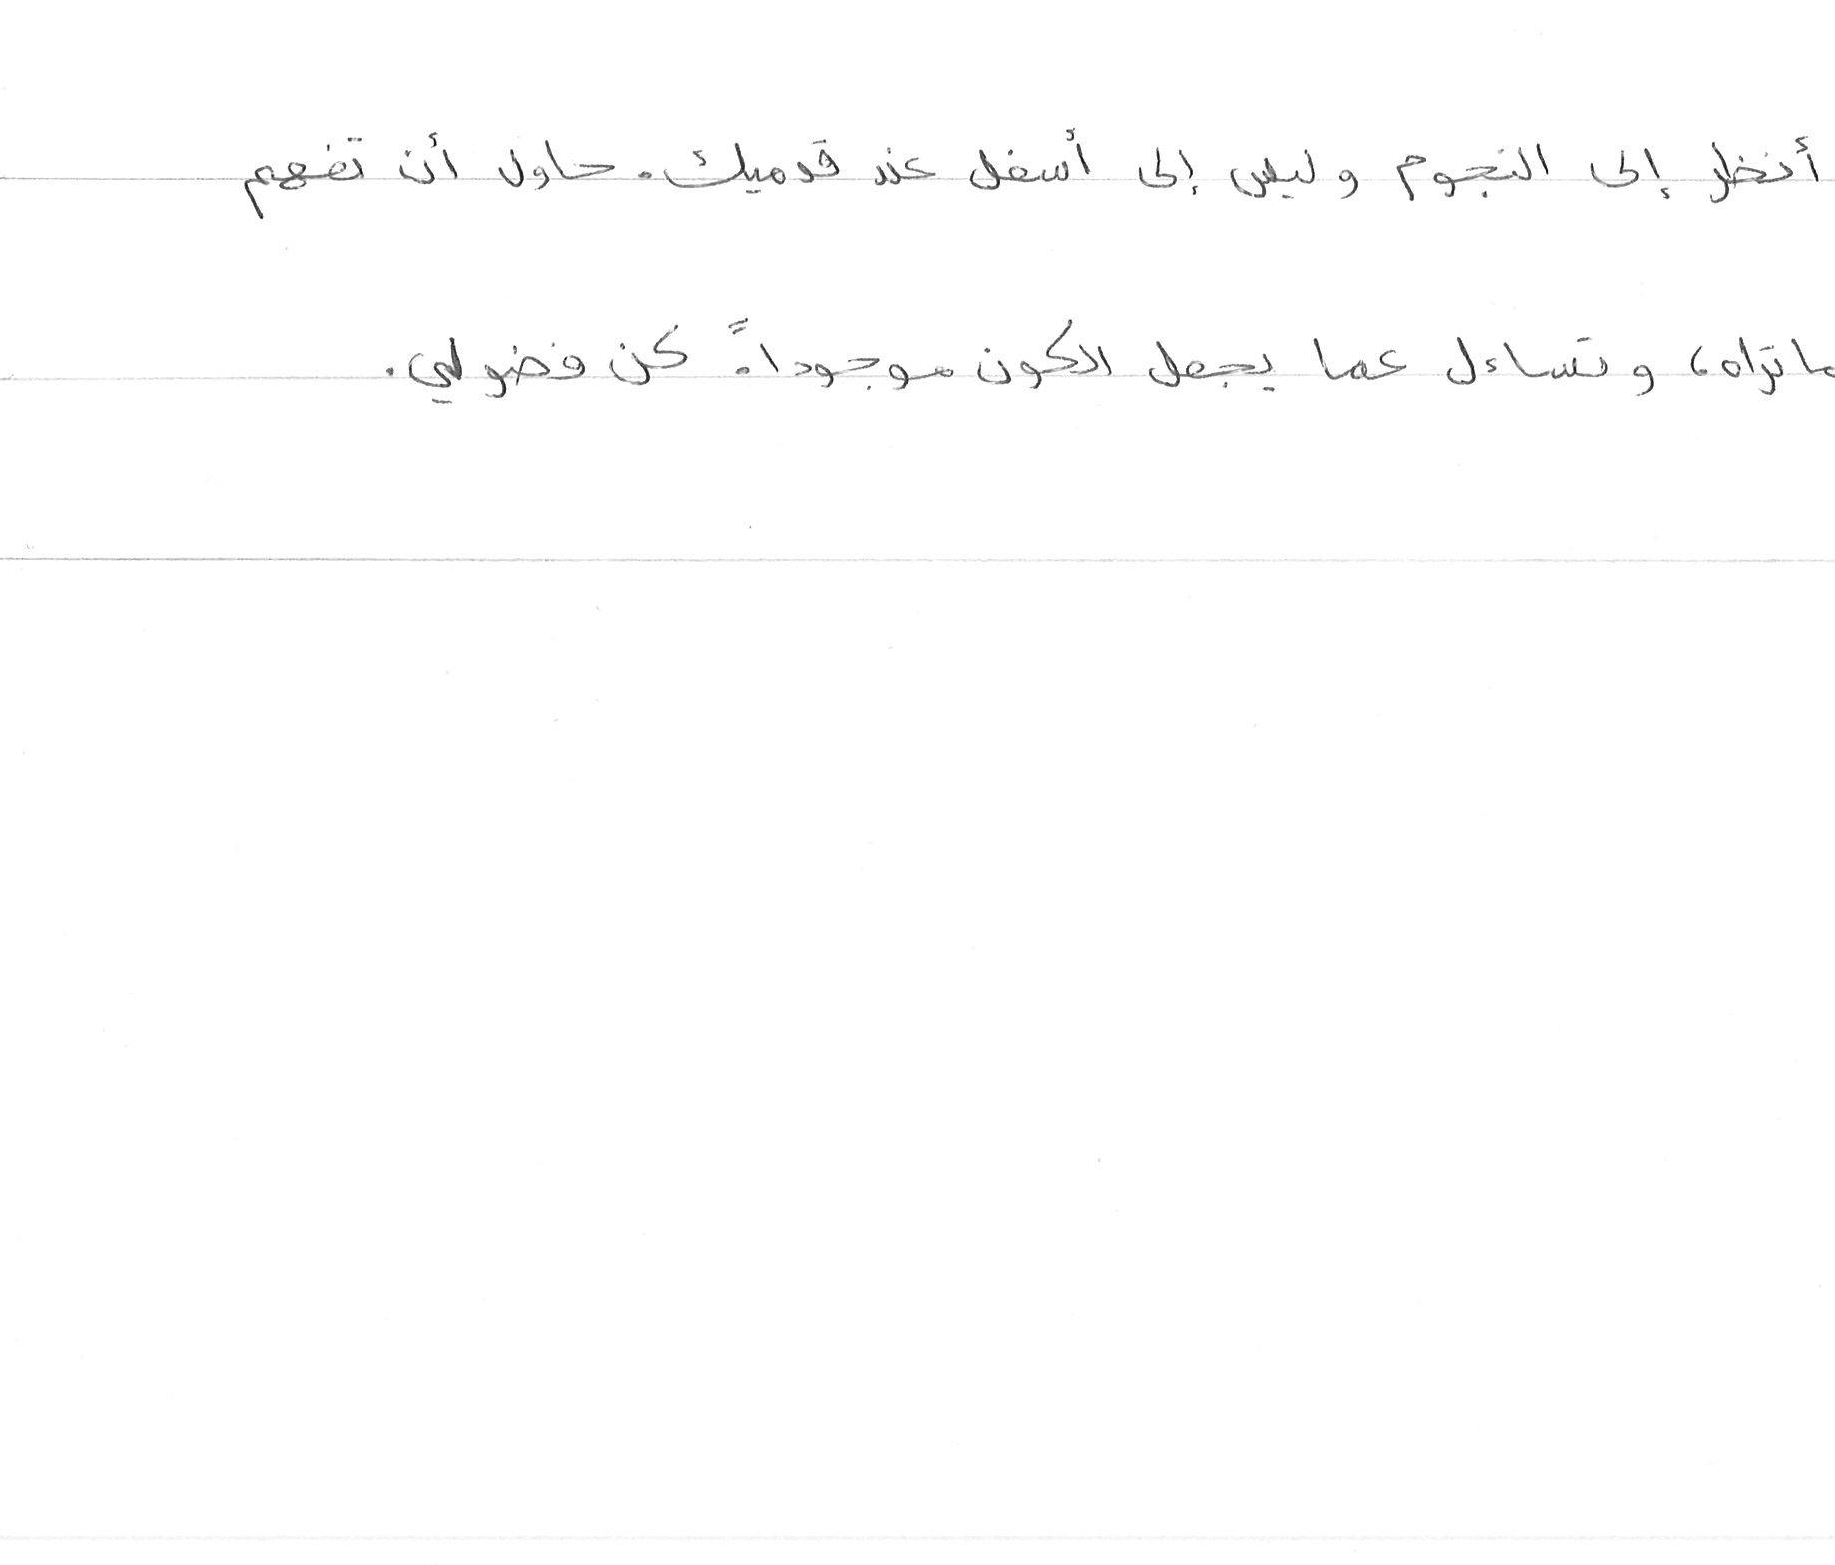 أنظر إلى النجوم وليس إلى أسفل عند قدميك. حاول أن تفهم
ما تراه، وتساءل عما يجعل الكون موجوداً. كن فضولي.